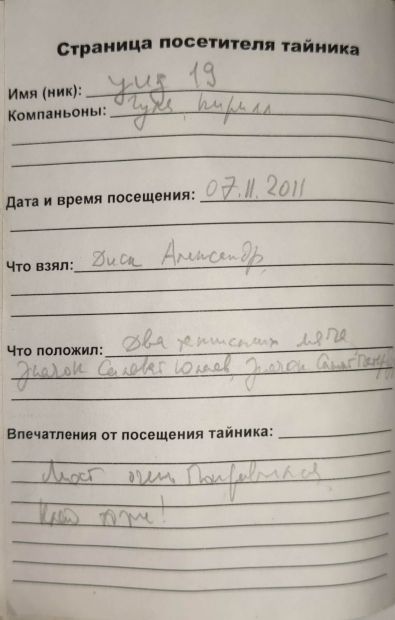 Страница посетителя тайника
Имя (ник): 19
Компаньоны: Кирилл
Дата и время посещения: 07.11.2011
Что взял: Диск Александр
Что положил: Два теннисных мяча,
Значок Салават Юлаев, Значок Санкт
Впечатления от посещения тайника:
Мост очень Понравился